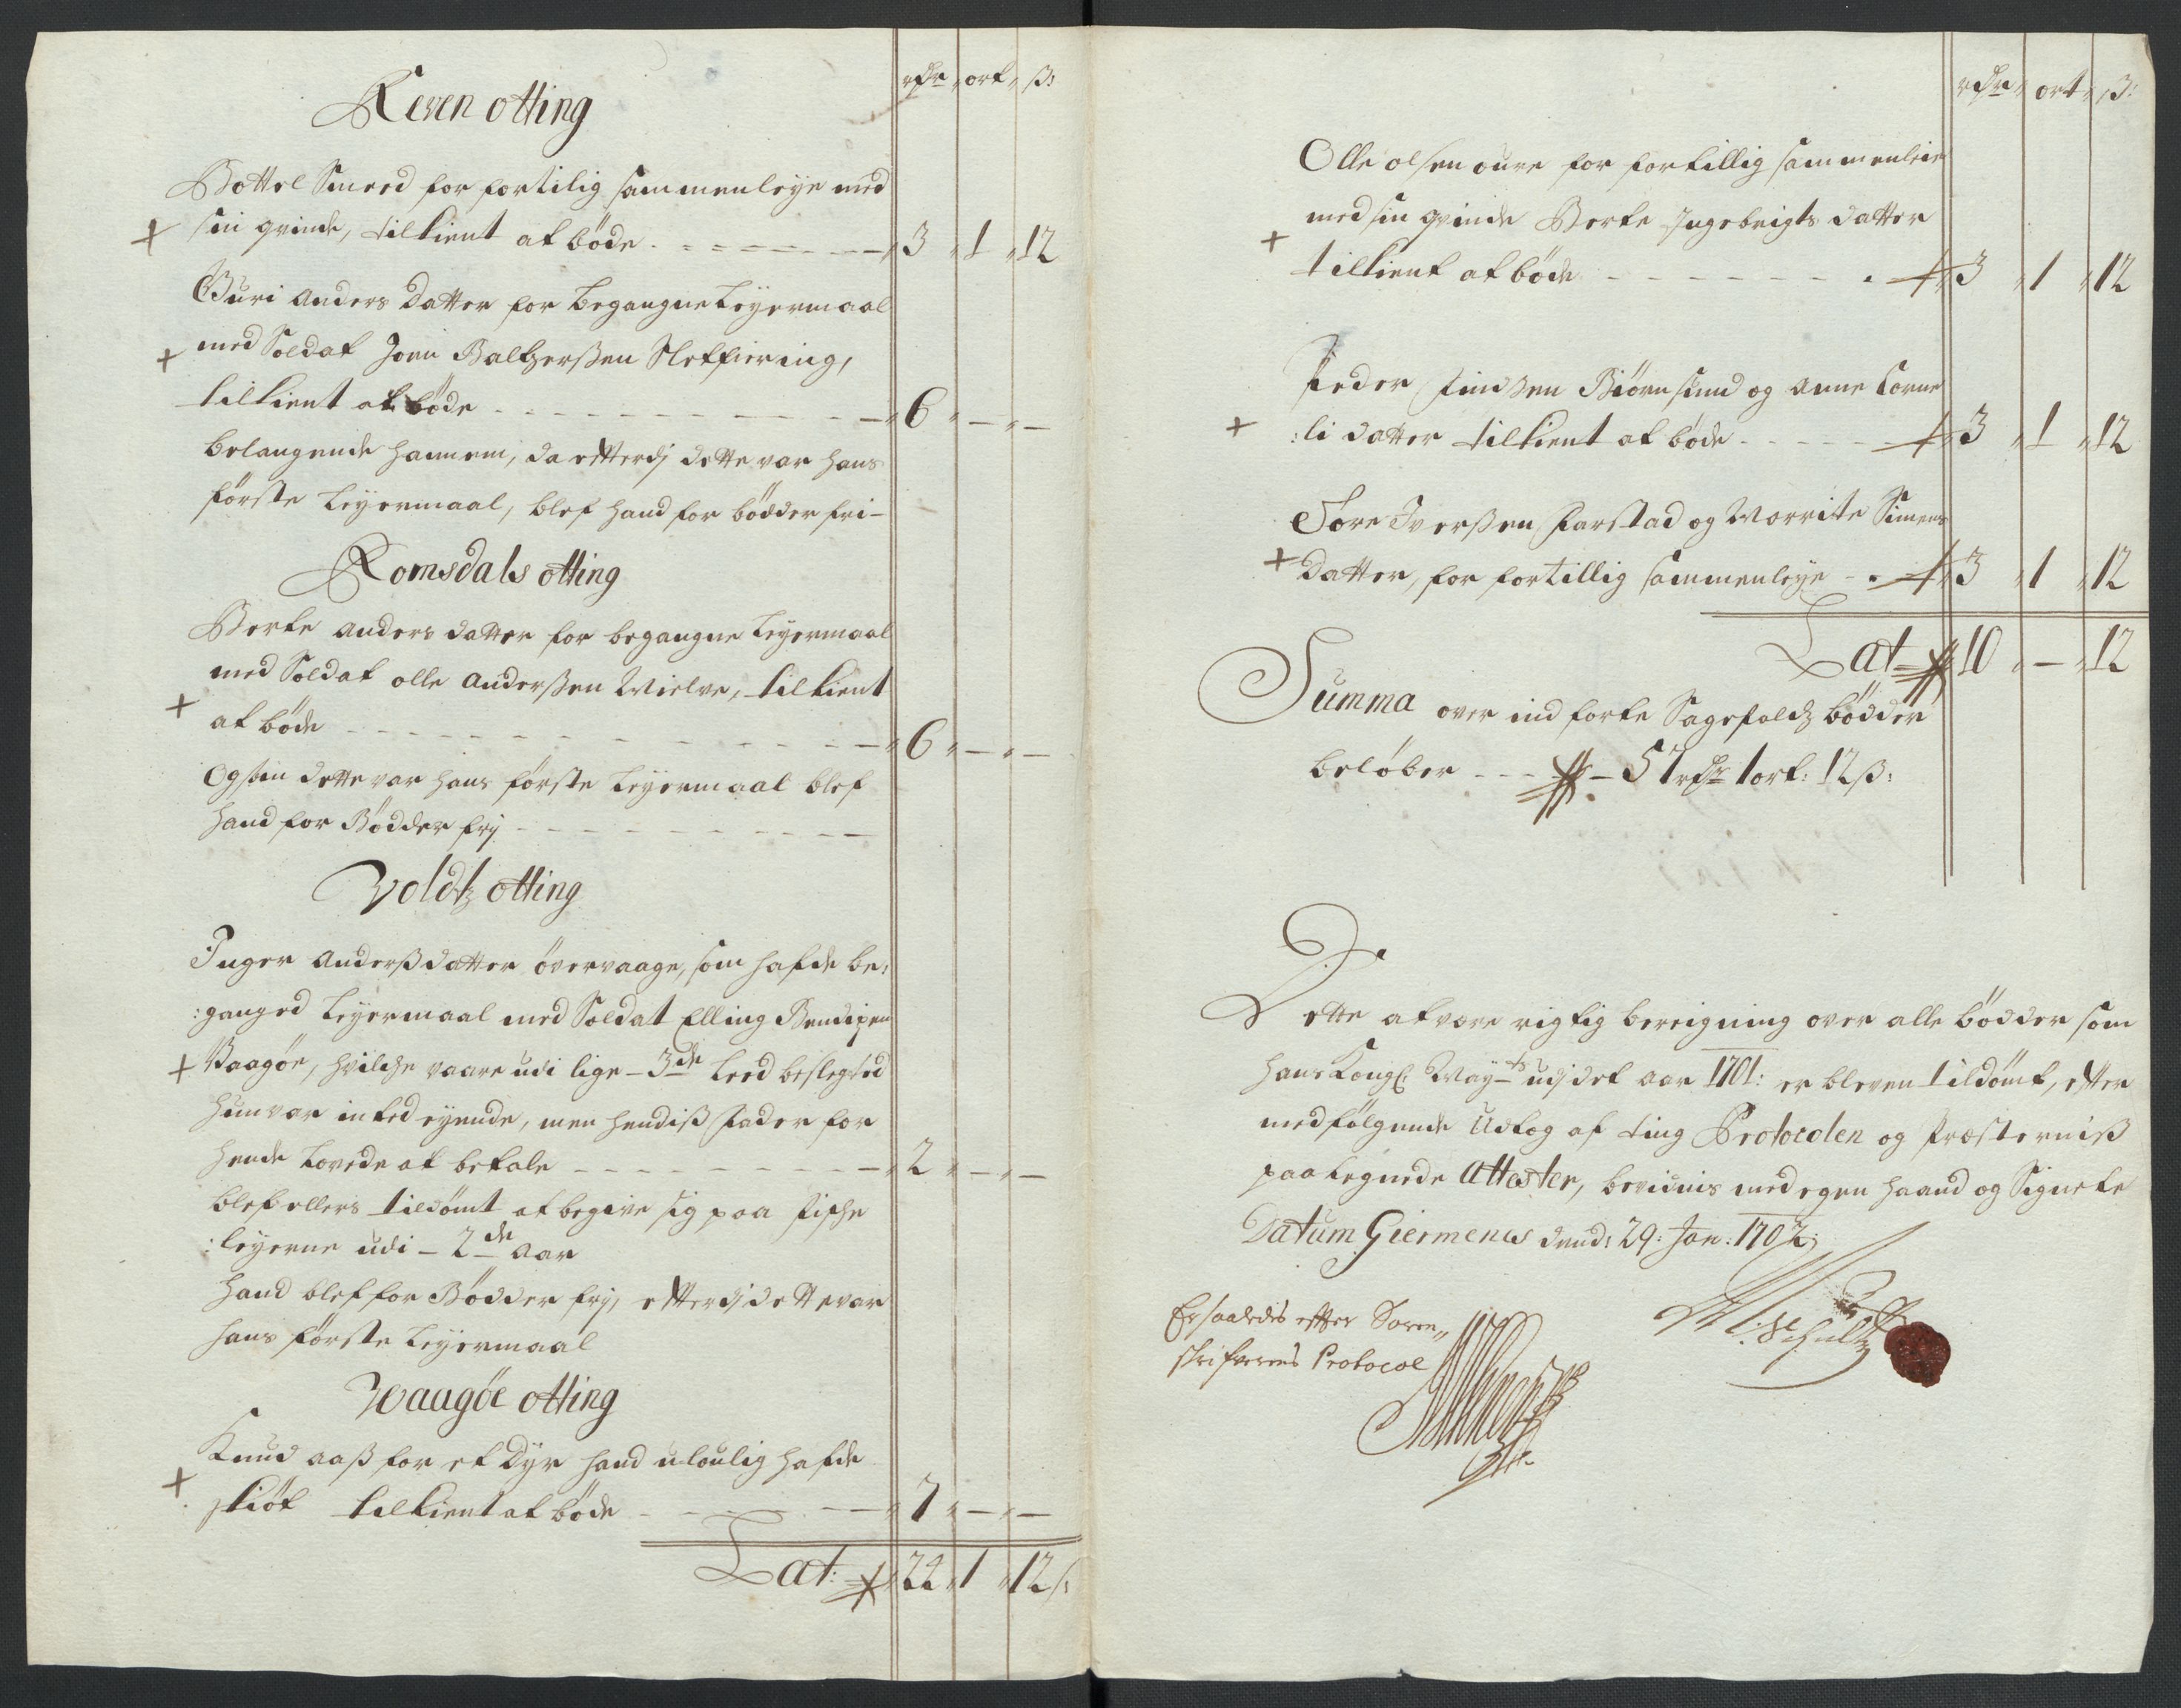 rdr ort ß:
Reven otting
Bottel Smed for fortilig sammenleye med
+ sin qvinde, tilkient at bøde - - - 3 " 1 " 12
Guri Anders Datter for begangne Leyermaal
+ med Soldat Joen Baltzerßen
tilkient at bøde - - - 6 " — " —
belangende hannem, da efterdj dette var hans
første Leyermaal, blef hand for bødder fri-
Romsdals otting
Berte Anders datter for begangne Leyermaal
+ med Soldat olle Anderßen Mielve, tilkient
at bøde - - - 6 " — " —
Og siden dette var hans første Leyermaal blef
hand for Bødder frj - - -
Voldtz otting
Inger Anderßdatter øvervaage, som hafde be:
:ganged Leyermaal med Soldat Elling
+ Vaagøe, hvilche vaare udi lige - 3de Leed beslegted
hun var inted eyende, men hendiß fader for
hende lovede at betale - - - 2 " — " —
blef ellers tildømt at begive sig paa fische
:leyerne udi - 2de aar
hand blef for Bødder frj, efterdj dette var
hans første Leyermaal
Waagøe otting
Knud aaß for et Dyr hand uloulig hafde
+ skiøt tilkient at bøde - - - 7 " — " —
Lat: 24 " 1 " 12 ß:
rdr ort ß:
Olle olsen oure for fortillig sammenleie
med sin qvinde Berte Ingebrigts datter
+ tilkient at bøde - - - 3 " 1 " 12
Peder Biørnsund og Anne Corne
+ :li datter tilkient at bøde - - - 3 " 1 " 12
Tore Iverßen Harstad og Marrite Simens
+ Datter, for fortillig sammenleye - - 3 " 1 " 12
Lat 10 " — " 12
Summa over ind forte Sagefaldz bødder
beløber - - - 57 rdr 1 ort: 12 ß:
Dette at være rigtig bereigning over alle bødder som
hans Kongl: May-ts udj det aar 1701: er bleven tildømt, efter
medfølgende Udtog af ting Protocolen og Præsterniß
paategnede Attester, bevidnis med egen haand og Signete
Datum Giermenes dend: 29: Jan: 1702:
Er saaledis efter Soren
skrifverens Protocol
Schultz